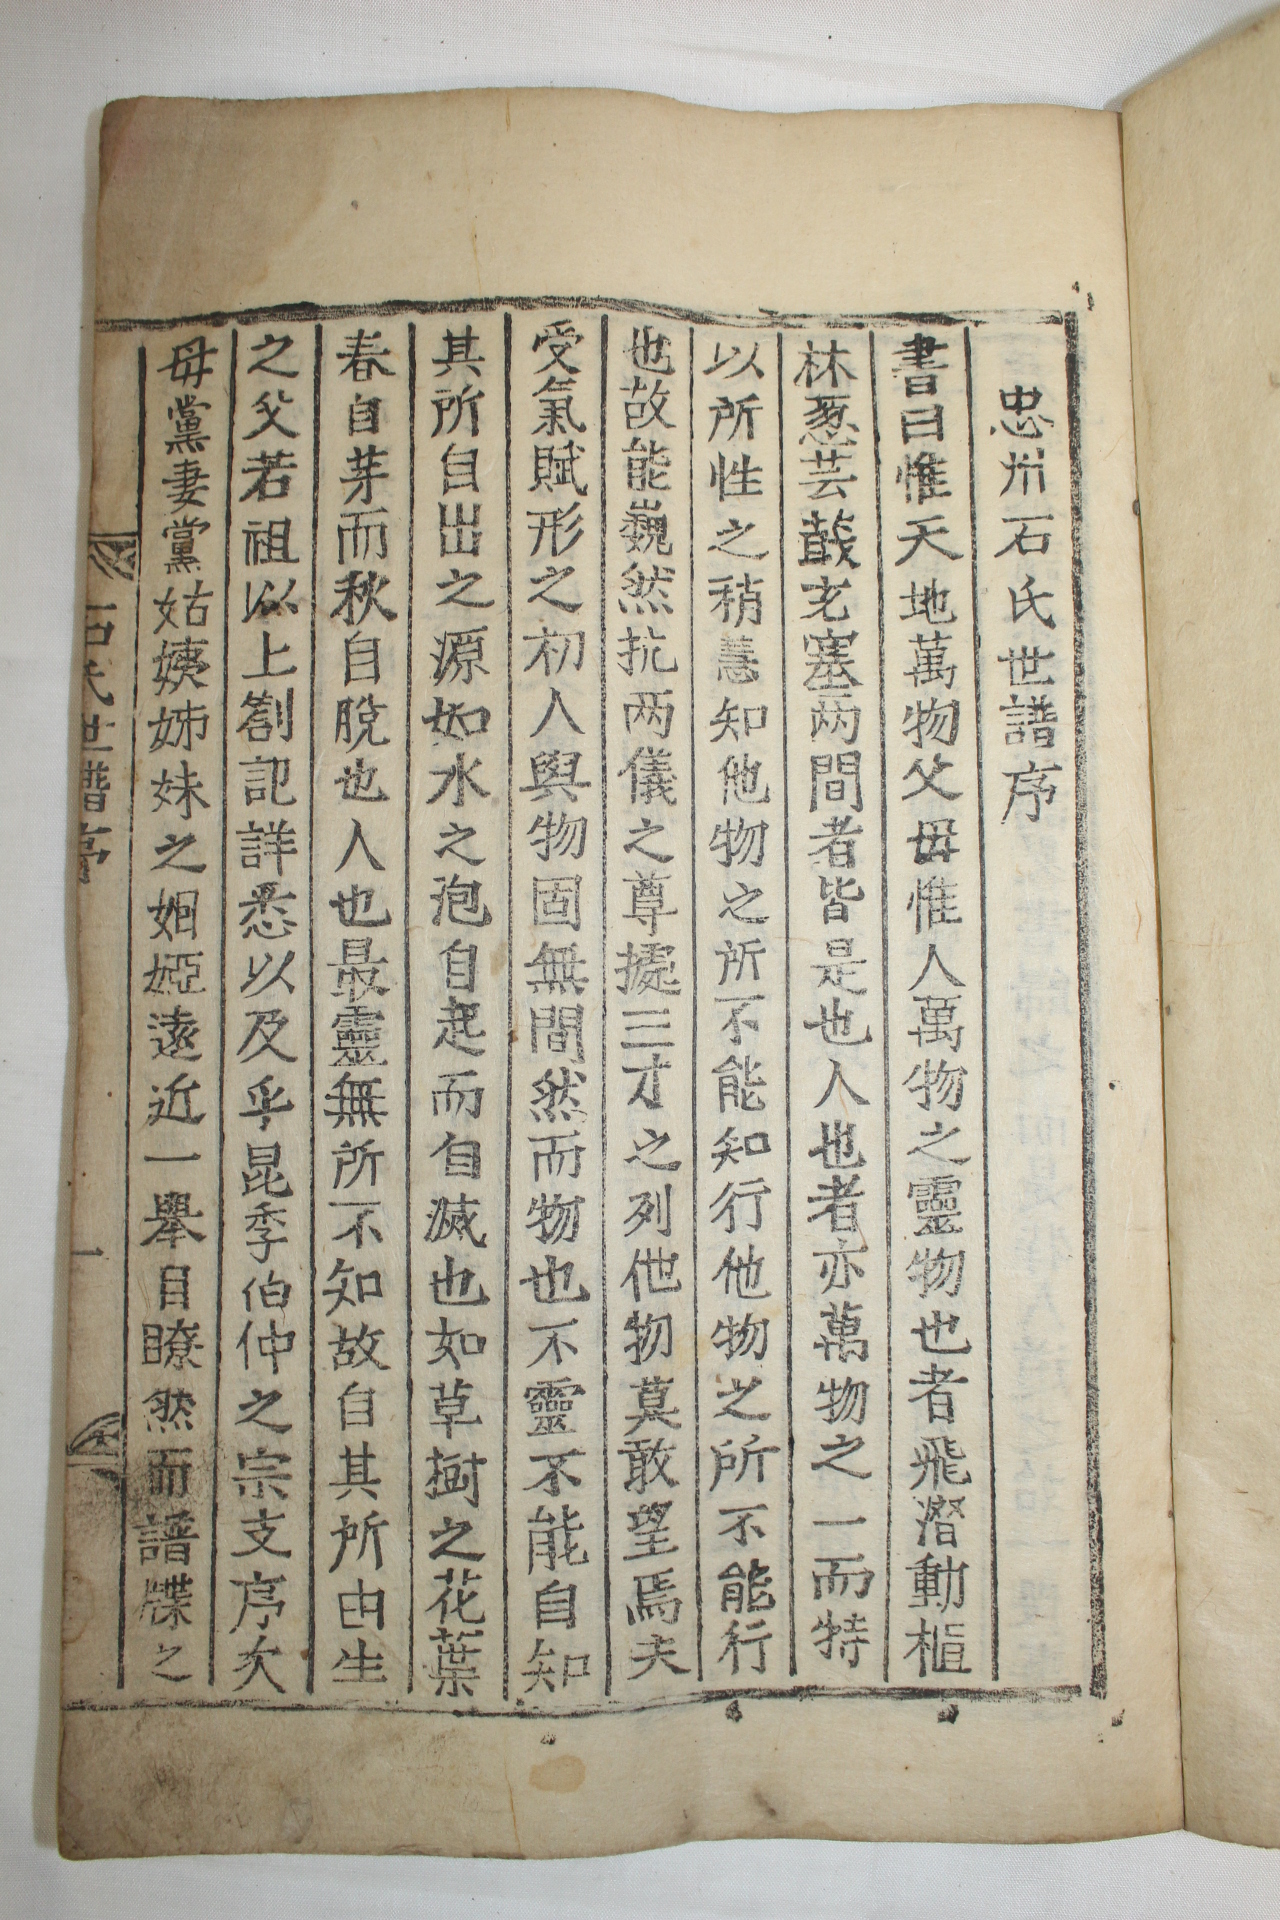 忠州石氏世譜序
書曰惟天地萬物父母惟人萬物之靈物也者飛潛動植
林葱芸蕺充塞两間者皆是也人也者亦萬物之一而特
以所性之稍慧知他物之所不能知行他物之所不能行
也故能巍然抗两儀之尊據三才之列他物莫敢望焉夫
受氣賦形之初人與物固無間然而物也不靈不能自知
其所自出之源如水之泡自起而自滅也如草樹之花葉
春自芽而秋自脫也人也最靈無所不知故自其所由生
之父若祖以上劄記詳悉以及乎昆季伯仲之宗支序次
母黨妻黨姑姨姊妹之姻婭遠近一擧目瞭然而譜牒之
石氏世譜序 一